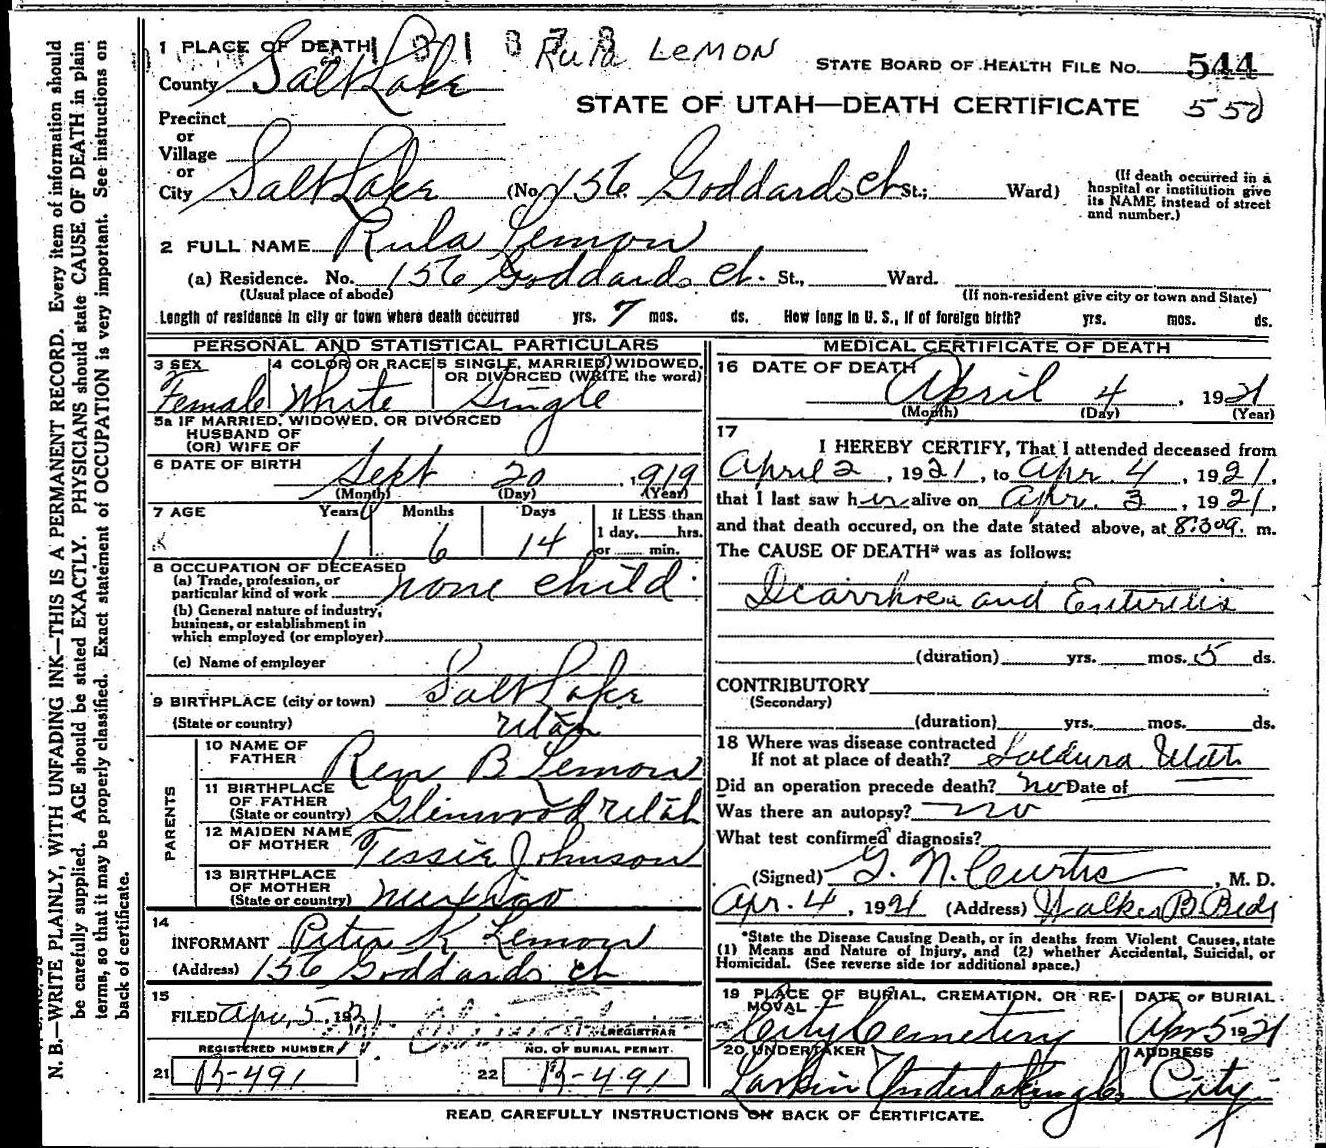 1 PLACE OF DEATH 8 1 8 7 8 Rula LEMON
County Salt Lake
STATE BOARD OF HEALTH FILE NO. 544
STATE OF UTAH—DEATH CERTIFICATE 550
Precinct
or
Village
or
City Salt Lake (No. 156 Goddards Ct St.; Ward)
(If death occurred in a hospital or institution give its NAME instead of street and number.)
2 FULL NAME Rula Lemon
(a) Residence. No. 156 Goddards Ct. St., Ward.
(Usual place of abode) (If non-resident give city or town and State)
Length of residence in city or town where death occurred yrs. 7 mos. ds. How long in U. S., if of foreign birth? yrs. mos. ds.
PERSONAL AND STATISTICAL PARTICULARS
3 SEX 4 COLOR OR RACE 5 SINGLE, MARRIED, WIDOWED,
OR DIVORCED (WRITE the word)
Female White Single
5a IF MARRIED, WIDOWED, OR DIVORCED
HUSBAND OF
(OR) WIFE OF
6 DATE OF BIRTH Sept 20, 1919
(Month) (Day) (Year)
7 AGE Years Months Days If LESS than
1 day, hrs.
1 6 14 or min.
8 OCCUPATION OF DECEASED
(a) Trade, profession, or
particular kind of work none child
(b) General nature of industry,
business, or establishment in
which employed (or employer)
(c) Name of employer
9 BIRTHPLACE (city or town) Salt Lake
(State or country) Utah
PARENTS
10 NAME OF
FATHER Ren B Lemon
11 BIRTHPLACE
OF FATHER
(State or country) Glenwood Utah
12 MAIDEN NAME
OF MOTHER Tessie Johnson
13 BIRTHPLACE
OF MOTHER
(State or country)
14
INFORMANT Peter K Lemon
(Address) 156 Goddards Ct
15
FILED Apr. 5, 1921
REGISTRAR
REGISTERED NUMBER NO. OF BURIAL PERMIT.
21 B-491 22 B-491
MEDICAL CERTIFICATE OF DEATH
16 DATE OF DEATH April 4, 1921
(Month) (Day) (Year)
17
I HEREBY CERTIFY, That I attended deceased from
April 2, 1921, to Apr. 4, 1921,
that I last saw her alive on Apr. 3, 1921,
and that death occured, on the date stated above, at 8:30a. m.
The CAUSE OF DEATH* was as follows:
Diarrhoea and Enteritis
(duration) yrs. mos. 5 ds.
CONTRIBUTORY
(Secondary)
(duration) yrs. mos. ds.
18 Where was disease contracted
If not at place of death? Utah
Did an operation precede death? no Date of
Was there an autopsy? no
What test confirmed diagnosis?
(Signed) G. N. Curtis, M. D.
Apr. 4, 1921 (Address) Walker B Bldg
*State the Disease Causing Death, or in deaths from Violent Causes, state
(1) Means and Nature of Injury, and (2) whether Accidental, Suicidal, or
Homicidal. (See reverse side for additional space.)
19 PLACE OF BURIAL, CREMATION, OR RE- DATE OF BURIAL
MOVAL
City Cemetery Apr 5 1921
20 UNDERTAKER ADDRESS
Larkin Undertaking Co City
READ CAREFULLY INSTRUCTIONS ON BACK OF CERTIFICATE.
N. B.—WRITE PLAINLY, WITH UNFADING INK—THIS IS A PERMANENT RECORD. Every item of information should
be carefully supplied. AGE should be stated EXACTLY. PHYSICIANS should state CAUSE OF DEATH in plain
terms, so that it may be properly classified. Exact statement of OCCUPATION is very important. See instructions on
back of certificate.